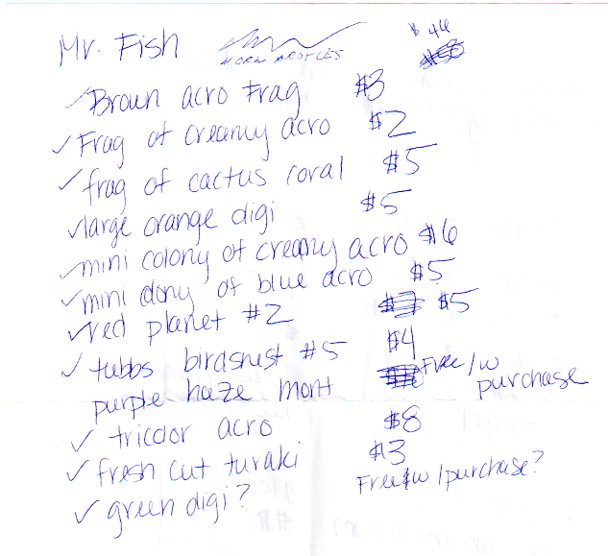 Mr. Fish $46
✓Brown acro Frag $3
✓Frag of creamy acro $2
✓frag of cactus coral $5
✓large orange digi $5
✓mini colony of creamy acro $6
✓mini clony of blue acro $5
✓red planet #2 $5
✓tubbs birdsnest #5 $4
purple haze mont Free/w
purchase
✓tricolor acro $8
✓fresh cut turaki $3
✓green digi? Free $w/purchase?